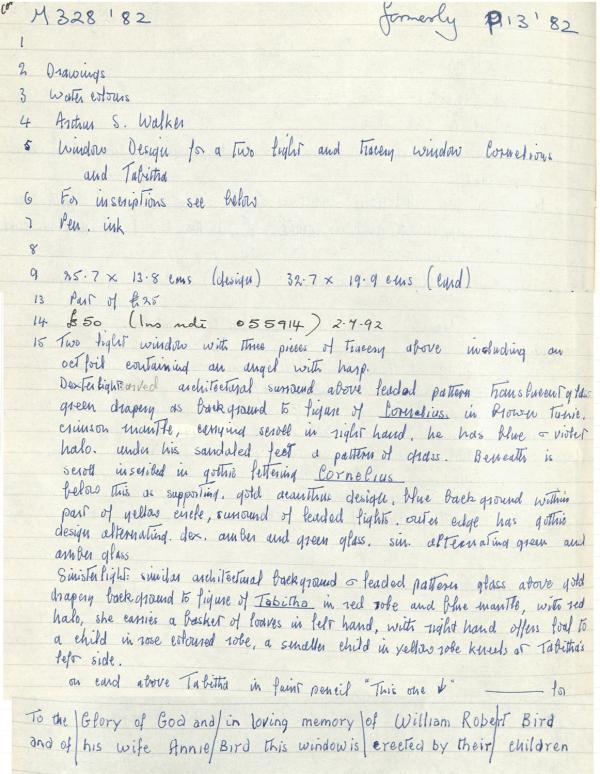 M328 '82 formerly P13 '82
1
2 Drawings
3 Water colours
4 Arthur S. Walker
5 Window Design for a two light and tracery window Cornelious
and Tabitha
6 For inscriptions see below
7 Pen. ink
8
9 25.7 x 13.8 cms (design) 32.7 x 19.9 cms (card)
13 Part of £25
14 £50 (Ins note 055914) 2.4.92
15 Two light window with three pieces of tracery above including an
octfoil containing an angel with harp.
Dexter light: carved architectural surround above leaded pattern translucent glass
green drapery as background to figure of Cornelius in brown tunic,
crimson mantle, carrying scroll in right hand, he has blue & violet
halo. under his sandaled feet a pattern of grass. Beneath is
scroll inscribed in gothic lettering Cornelius
below this as supporting. gold acanthus design, blue background within
part of yellow circle, surround of leaded lights. outer edge has gothic
design alternating. dex. amber and green glass. sin. alternating green and
amber glass
Sinister light: similar architectural background & leaded pattern glass above gold
drapery background to figure of Tabitha in red robe and blue mantle, with red
halo, she carries a basket of loaves in left hand, with right hand offers loaf to
a child in rose coloured robe, a smaller child in yellow robe kneels at Tabitha's
left side.
on card above Tabitha in faint pencil "This one ↓" for
To the/Glory of God and/in loving memory/of William Robert Bird
and of/his wife Annie/Bird this window is/erected by their/children